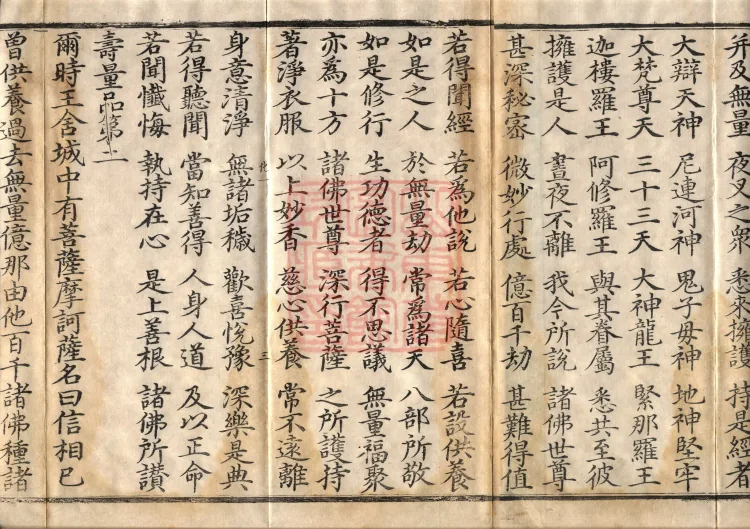 并及無量 夜叉之衆 悉來擁護 持是經者
大辯天神 尼連河神 鬼子毋神 地神堅牢
大梵尊天 三十三天 大神龍王 緊那羅王
迦樓羅王 阿修羅王 與其眷屬 悉共至彼
擁護是人 晝夜不離 我今所說 諸佛世尊
甚深秘密 微妙行處 億百千劫 甚難得值
若得聞經 若為他說 若心隨喜 若設供養
如是之人 於無量劫 常為諸天 八部所敬
如是修行 生功德者 得不思議 無量福聚
亦為十方 諸佛世尊 深行菩薩 之所護持
著淨衣服 以上妙香 慈心供養 常不遠離
身意清淨 無諸垢穢 歡喜悅豫 深樂是典
若得聽聞 當知善得 人身人道 及以正命
若聞懺悔 執持在心 是上善根 諸佛所讚
壽量品第二
爾時王舍城中有菩薩摩訶薩名曰信相已
曾供養過去無量億那由他百千諸佛種諸